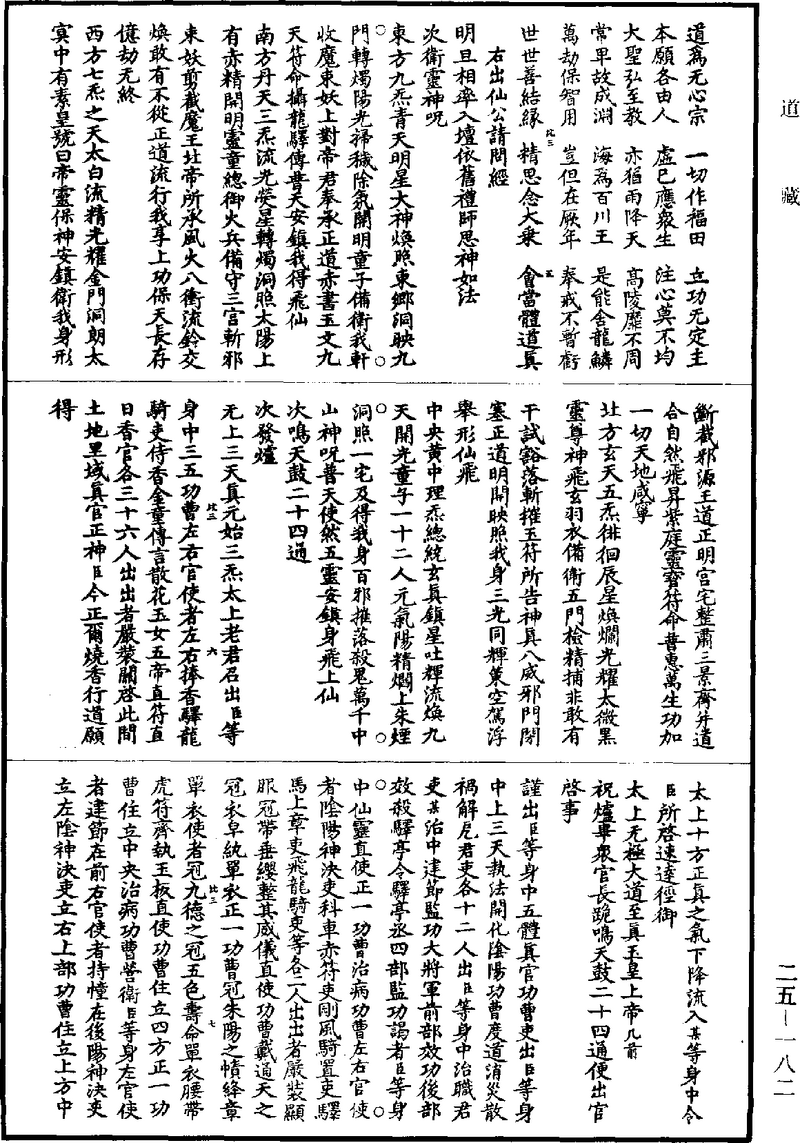 道藏
道爲无心宗　一切作福田　立功无定主
本願各由人　虛已應衆生　注心莫不均
大聖弘至教　亦猶雨降天　高陵靡不周
常卑故成淵　海爲百川王　是能舍龍鱗
萬劫保智用　豈但在厥年　奉戒不暫虧
世世善結緣　精思念大乘　會當體道眞
右出仙公請問經
明旦相率入壇依舊禮師思神如法
次衛靈神呪
東方九炁青天明星大神煥照東鄉洞映九
門轉燭陽光掃穢除氛開明童子備衛我軒
收魔束妖上對帝君奉承正道赤書玉文九
天符命攝龍驛傳普天安鎮我得飛仙
南方丹天三炁流光熒星轉燭洞照太陽上
有赤精開明靈童總御火兵備守三宮斬邪
束妖剪截魔王北帝所承風火八衝流鈴交
煥敢有不從正道流行我享上功保天長存
億劫无終
西方七炁之天太白流精光耀金門洞朗太
冥中有素皇號曰帝靈保神安鎮衛我身形
斷截邪源王道正明宮宅整肅三景齊并道
合自然飛昇紫庭靈寶符命普惠萬生功加
一切天地咸寧
北方玄天五炁徘徊辰星煥爛光耀太微黑
靈尊神飛玄羽衣備衛五門檢精捕非敢有
干試豁落斬摧玉符所告神眞八威邪門閉
塞正道明開映照我身三光同輝策空駕浮
舉形仙飛
中央黄中理炁總統玄眞鎮星吐輝流煥九
天開光童子一十二人元氣陽精爛上朱煙
洞照一宅及得我身百邪摧落殺鬼萬千中
山神呪普天使然五靈安鎮身飛上仙
次鳴天鼓二十四通
次發爐
无上三天眞元始三炁太上老君召出臣等
身中三五功曹左右官使者左右捧香驛龍
騎吏侍香金童傳言散花玉女五帝直符直
日香官各三十六人出出者嚴裝關啓此間
土地里域眞官正神臣今正爾燒香行道願
得
太上十方正眞之氣下降流入某等身中令
臣所啓速達徑御
太上无極大道至眞玉皇上帝几前
祝爐畢衆官長跪鳴天鼓二十四通便出官
啓事
謹出臣等身中五體眞官功曹吏出臣等身
中上三天執法開化陰陽功曹度道消災散
禍解厄君吏各十二人出臣等身中治職君
吏某治中建節監功大將軍前部效功後部
效殺驛亭令驛亭丞四部監功謁者臣等身
中仙靈直使正一功曹治病功曹左右官使
者陰陽神決吏科車赤符吏剛風騎置吏驛
馬上章吏飛龍騎吏等各二人出出者嚴裝顯
服冠帶垂纓整其威儀直使功曹戴通天之
冠衣皁紈單衣正一功曹冠朱陽之幘絳章
單衣使者冠九德之冠五色壽命單衣腰帶
虎符齊執玉板直使功曹住立四方正一功
曹住立中央治病功曹營衛臣等身左官使
者建節在前右官使者持幢在後陽神決吏
立左陰神決吏立右上部功曹住立上方中
二五—一八二